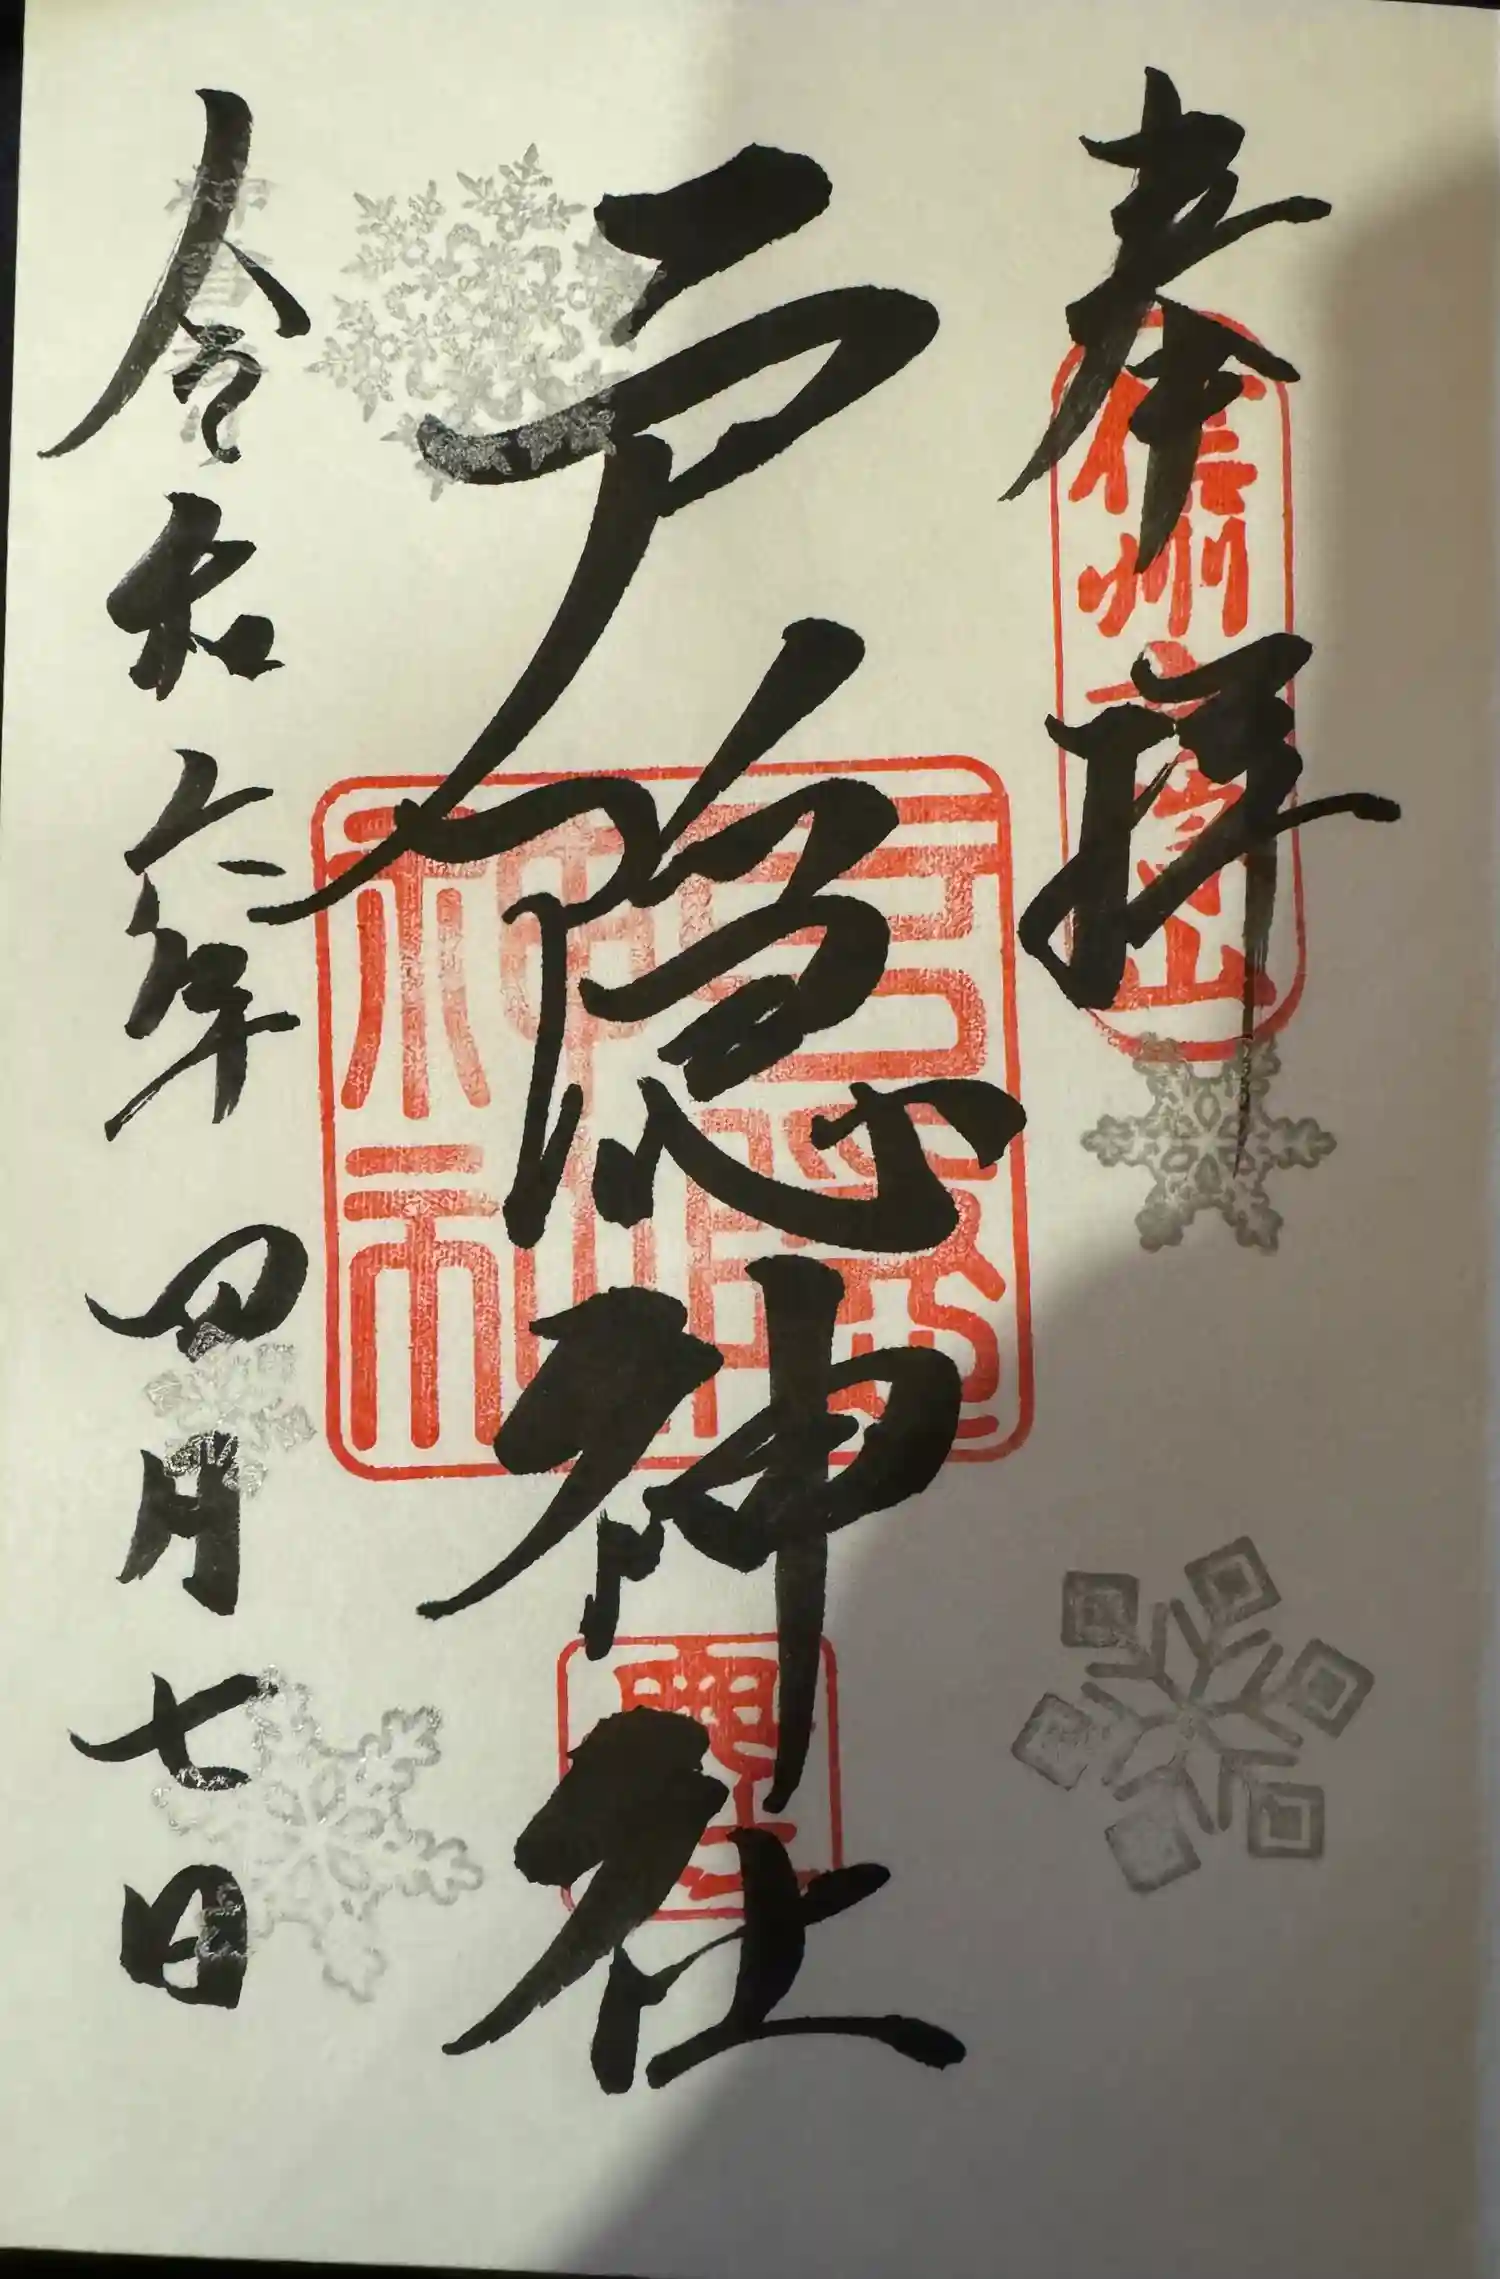 奉拝
信州戸隠山
戸隠神社
令和六年四月七日